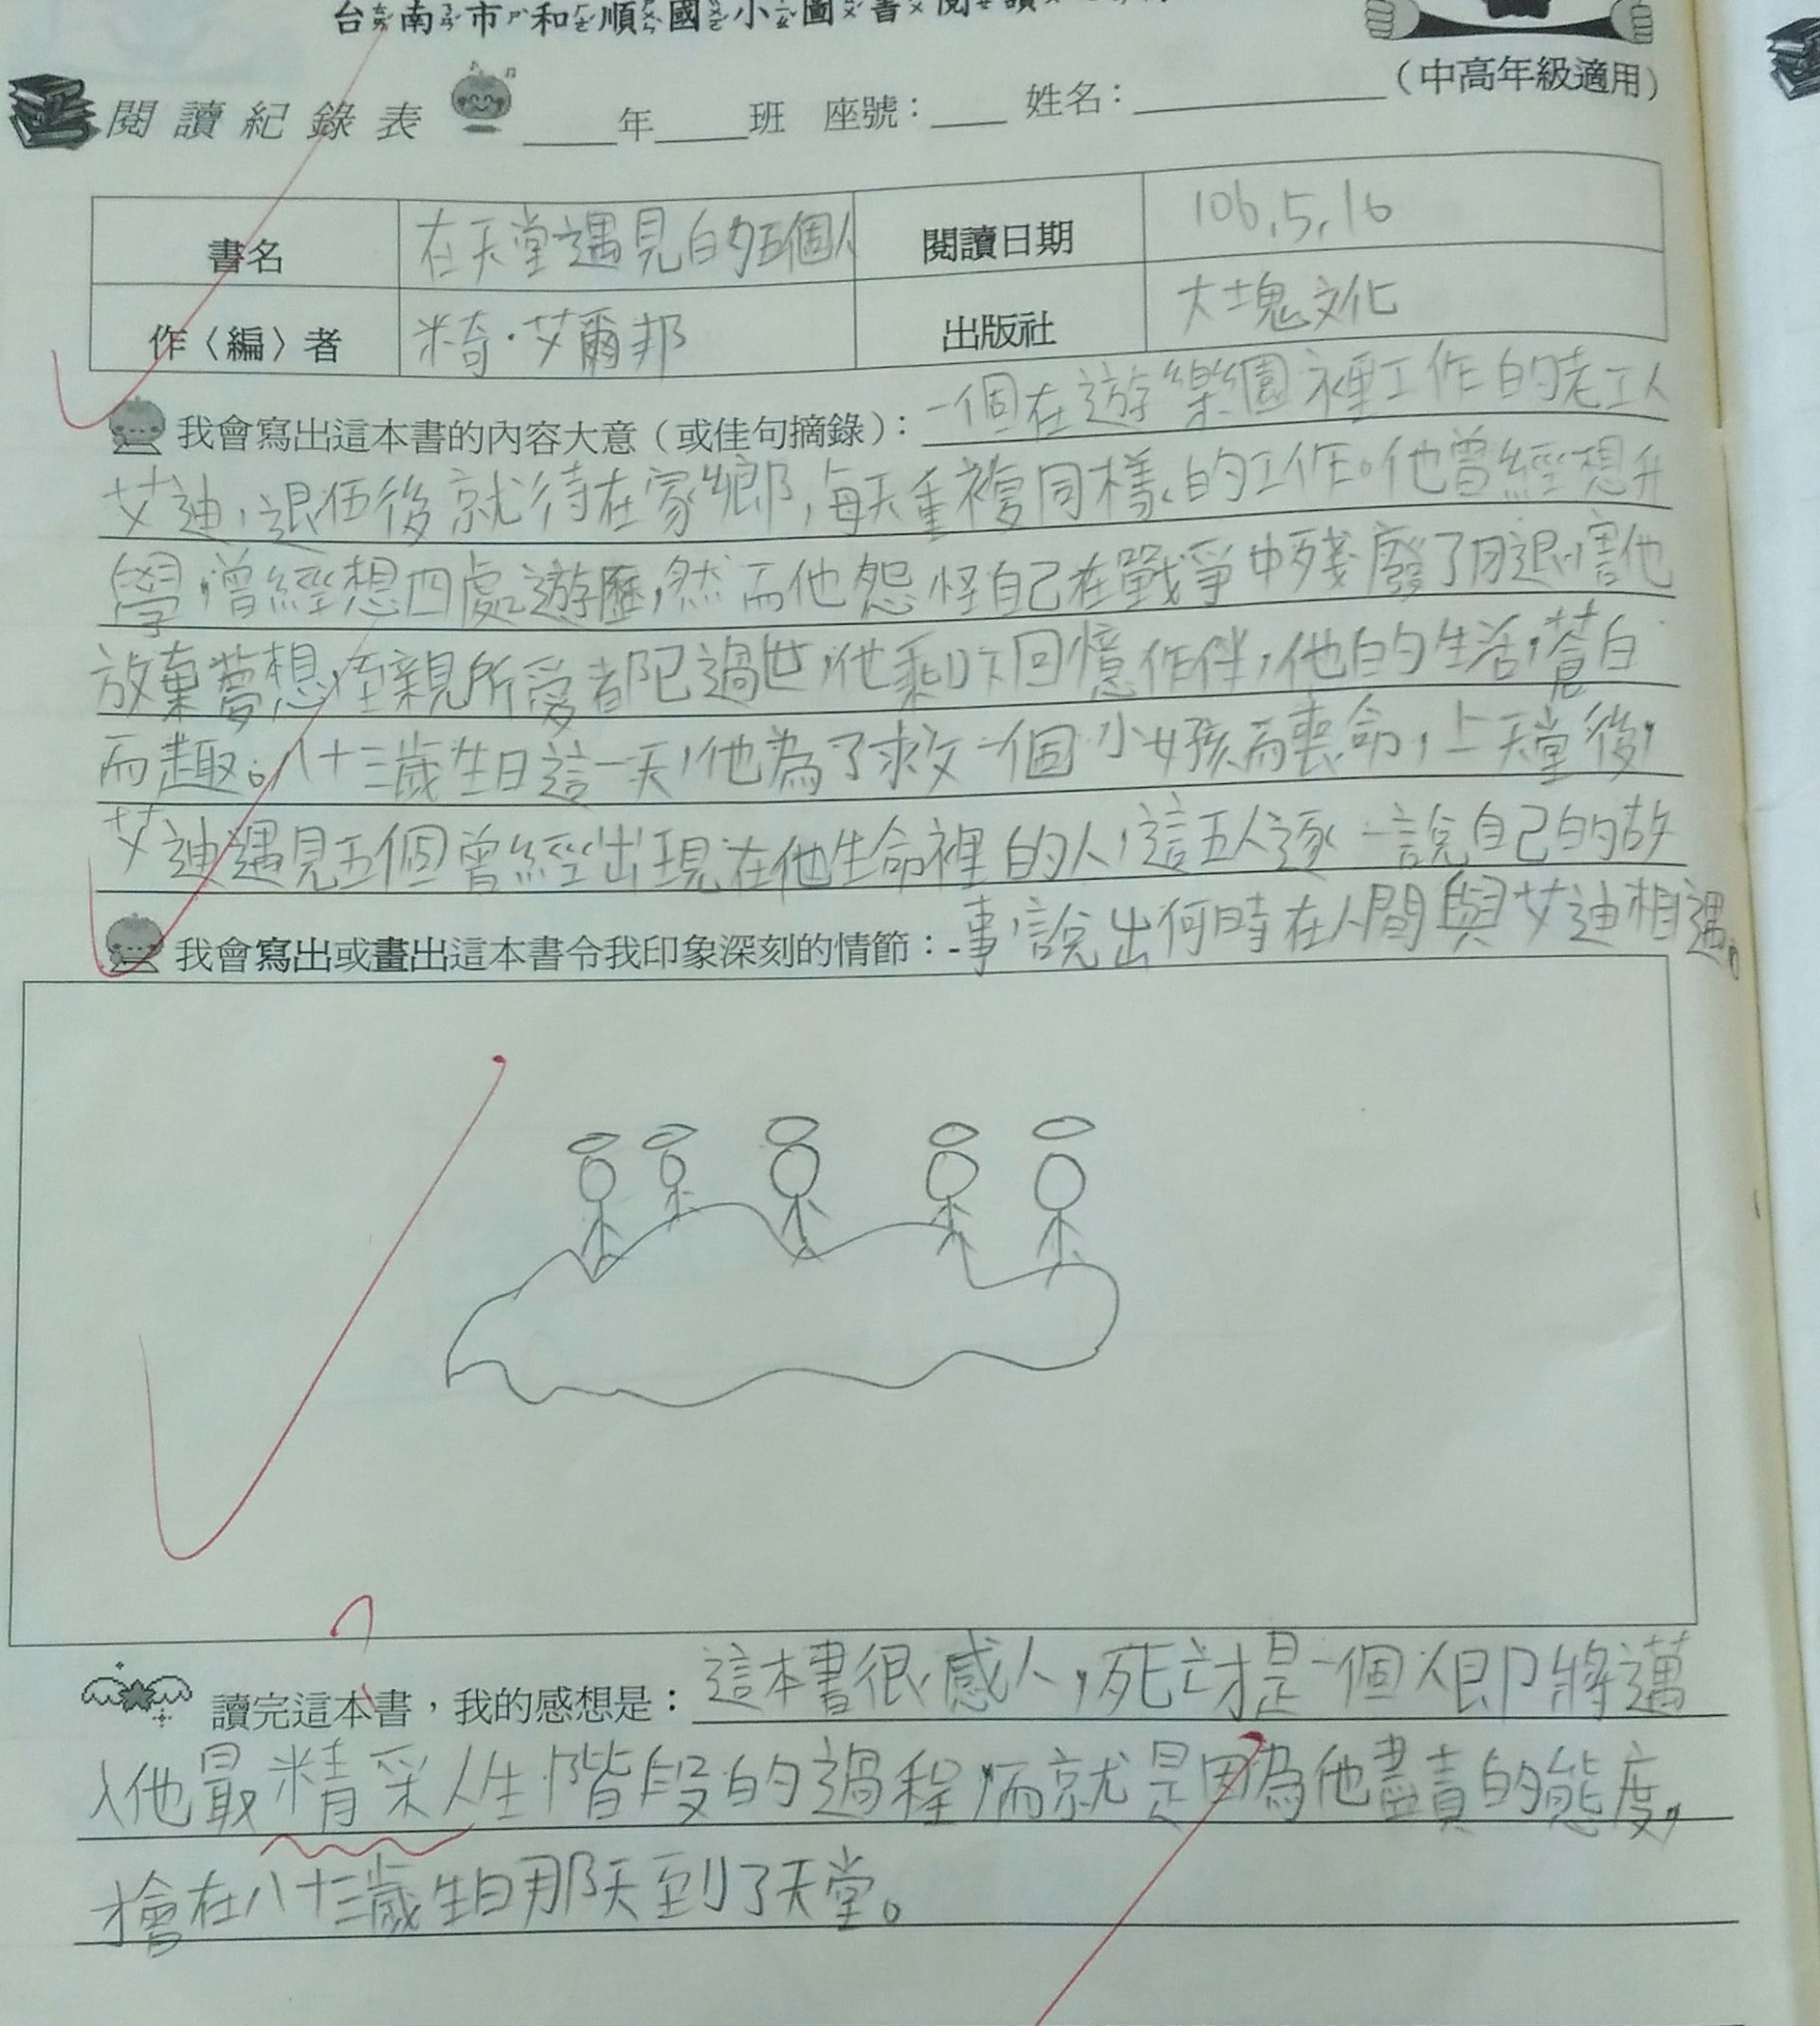 台南市和順國小圖書閱讀
閱讀紀錄表 ____年____班 座號：___ 姓名：__________ (中高年級適用)
書名 在天堂遇見的五個人 閱讀日期 106.5.16
作〈編〉者 米奇·艾爾邦 出版社 大塊文化
我會寫出這本書的內容大意（或佳句摘錄）：一個在遊樂園裡工作的老工人
艾迪，退伍後就待在家鄉，每天重複同樣的工作。他曾經想升
學，曾經想四處遊歷，然而他怨怪自己在戰爭中殘廢了腿，害他
放棄夢想，至親所愛者都已過世，他剩下回憶作伴，他的生活，蒼白
而趣。八十三歲生日這一天，他為了救一個小女孩而喪命，上天堂後，
艾迪遇見五個曾經出現在他生命裡的人，這五人逐一說自己的故
我會寫出或畫出這本書令我印象深刻的情節：事，說出何時在人間與艾迪相遇。
讀完這本書，我的感想是：這本書很感人，死亡才是一個人即將邁
入他最精采人生階段的過程，而就是因為他盡責的態度，
才會在八十三歲生日那天到了天堂。